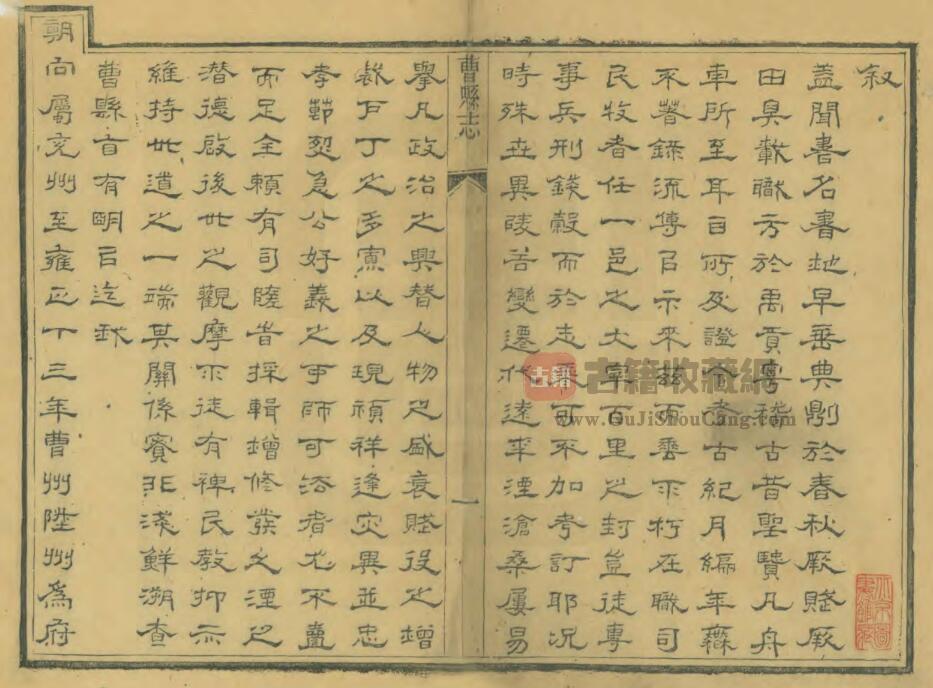 叙
蓋聞書名書地早垂典則於春秋厥賦厥
田具載職方於禹貢粵稽古昔聖賢凡舟
車所至耳目所及證今考古紀月編年靡
不著錄流傳以示來茲而垂不朽在職司
民牧者任一邑之大宰百里之封豈徒專
事兵刑錢穀而於志乘可不加考訂耶況
時殊世異陵谷變遷代遠年湮滄桑屢易
曹縣志
一
舉凡政治之興替人物之盛衰賦役之增
裁戶丁之多寡以及現禎祥逢灾異並忠
孝節烈急公好義之事師可法者尤不壹
而足全賴有司隨旹採輯增修發久湮之
潛德啟後世之觀摩不徒有裨民教抑亦
維持世道之一端其關係實非淺鮮溯查
曹縣自有明以迄我
朝向屬兗州至雍正十三年曹州陞州為府
古籍
古籍收藏網
www.GuJiShouCang.com